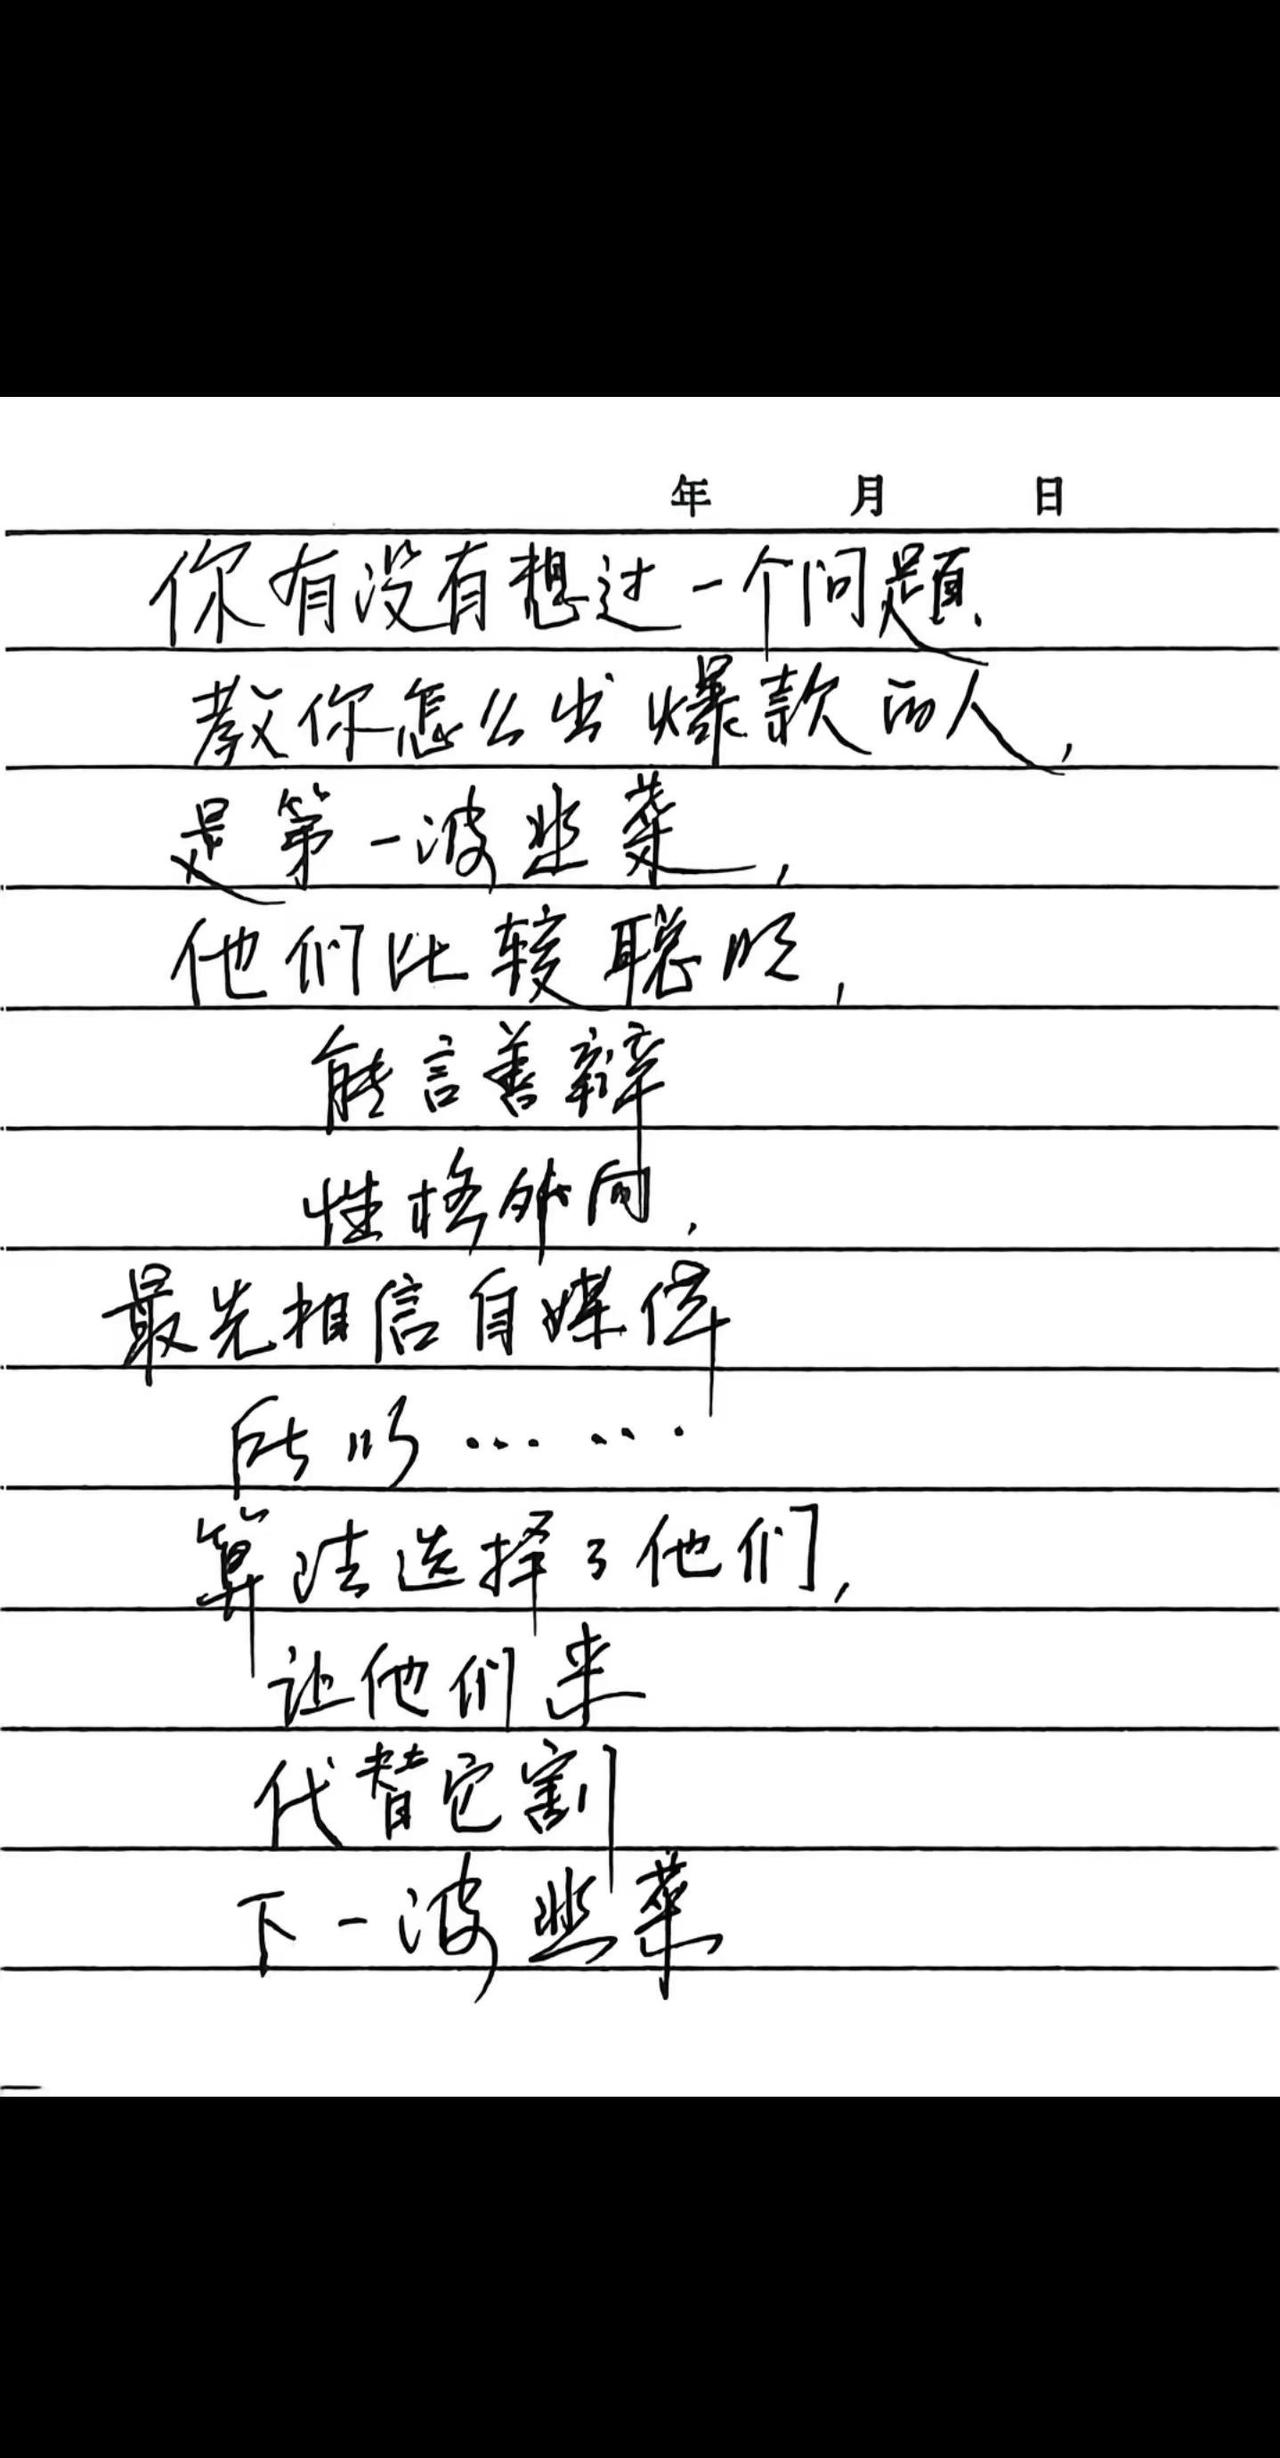 年 月 日
你有没有想过一个问题.
教你怎么出爆款的人,
是第一波韭菜,
他们比较聪明,
能言善辩
性格外向,
最先相信自媒体
所以……
算法选择了他们,
让他们来
代替它割
下一波韭菜